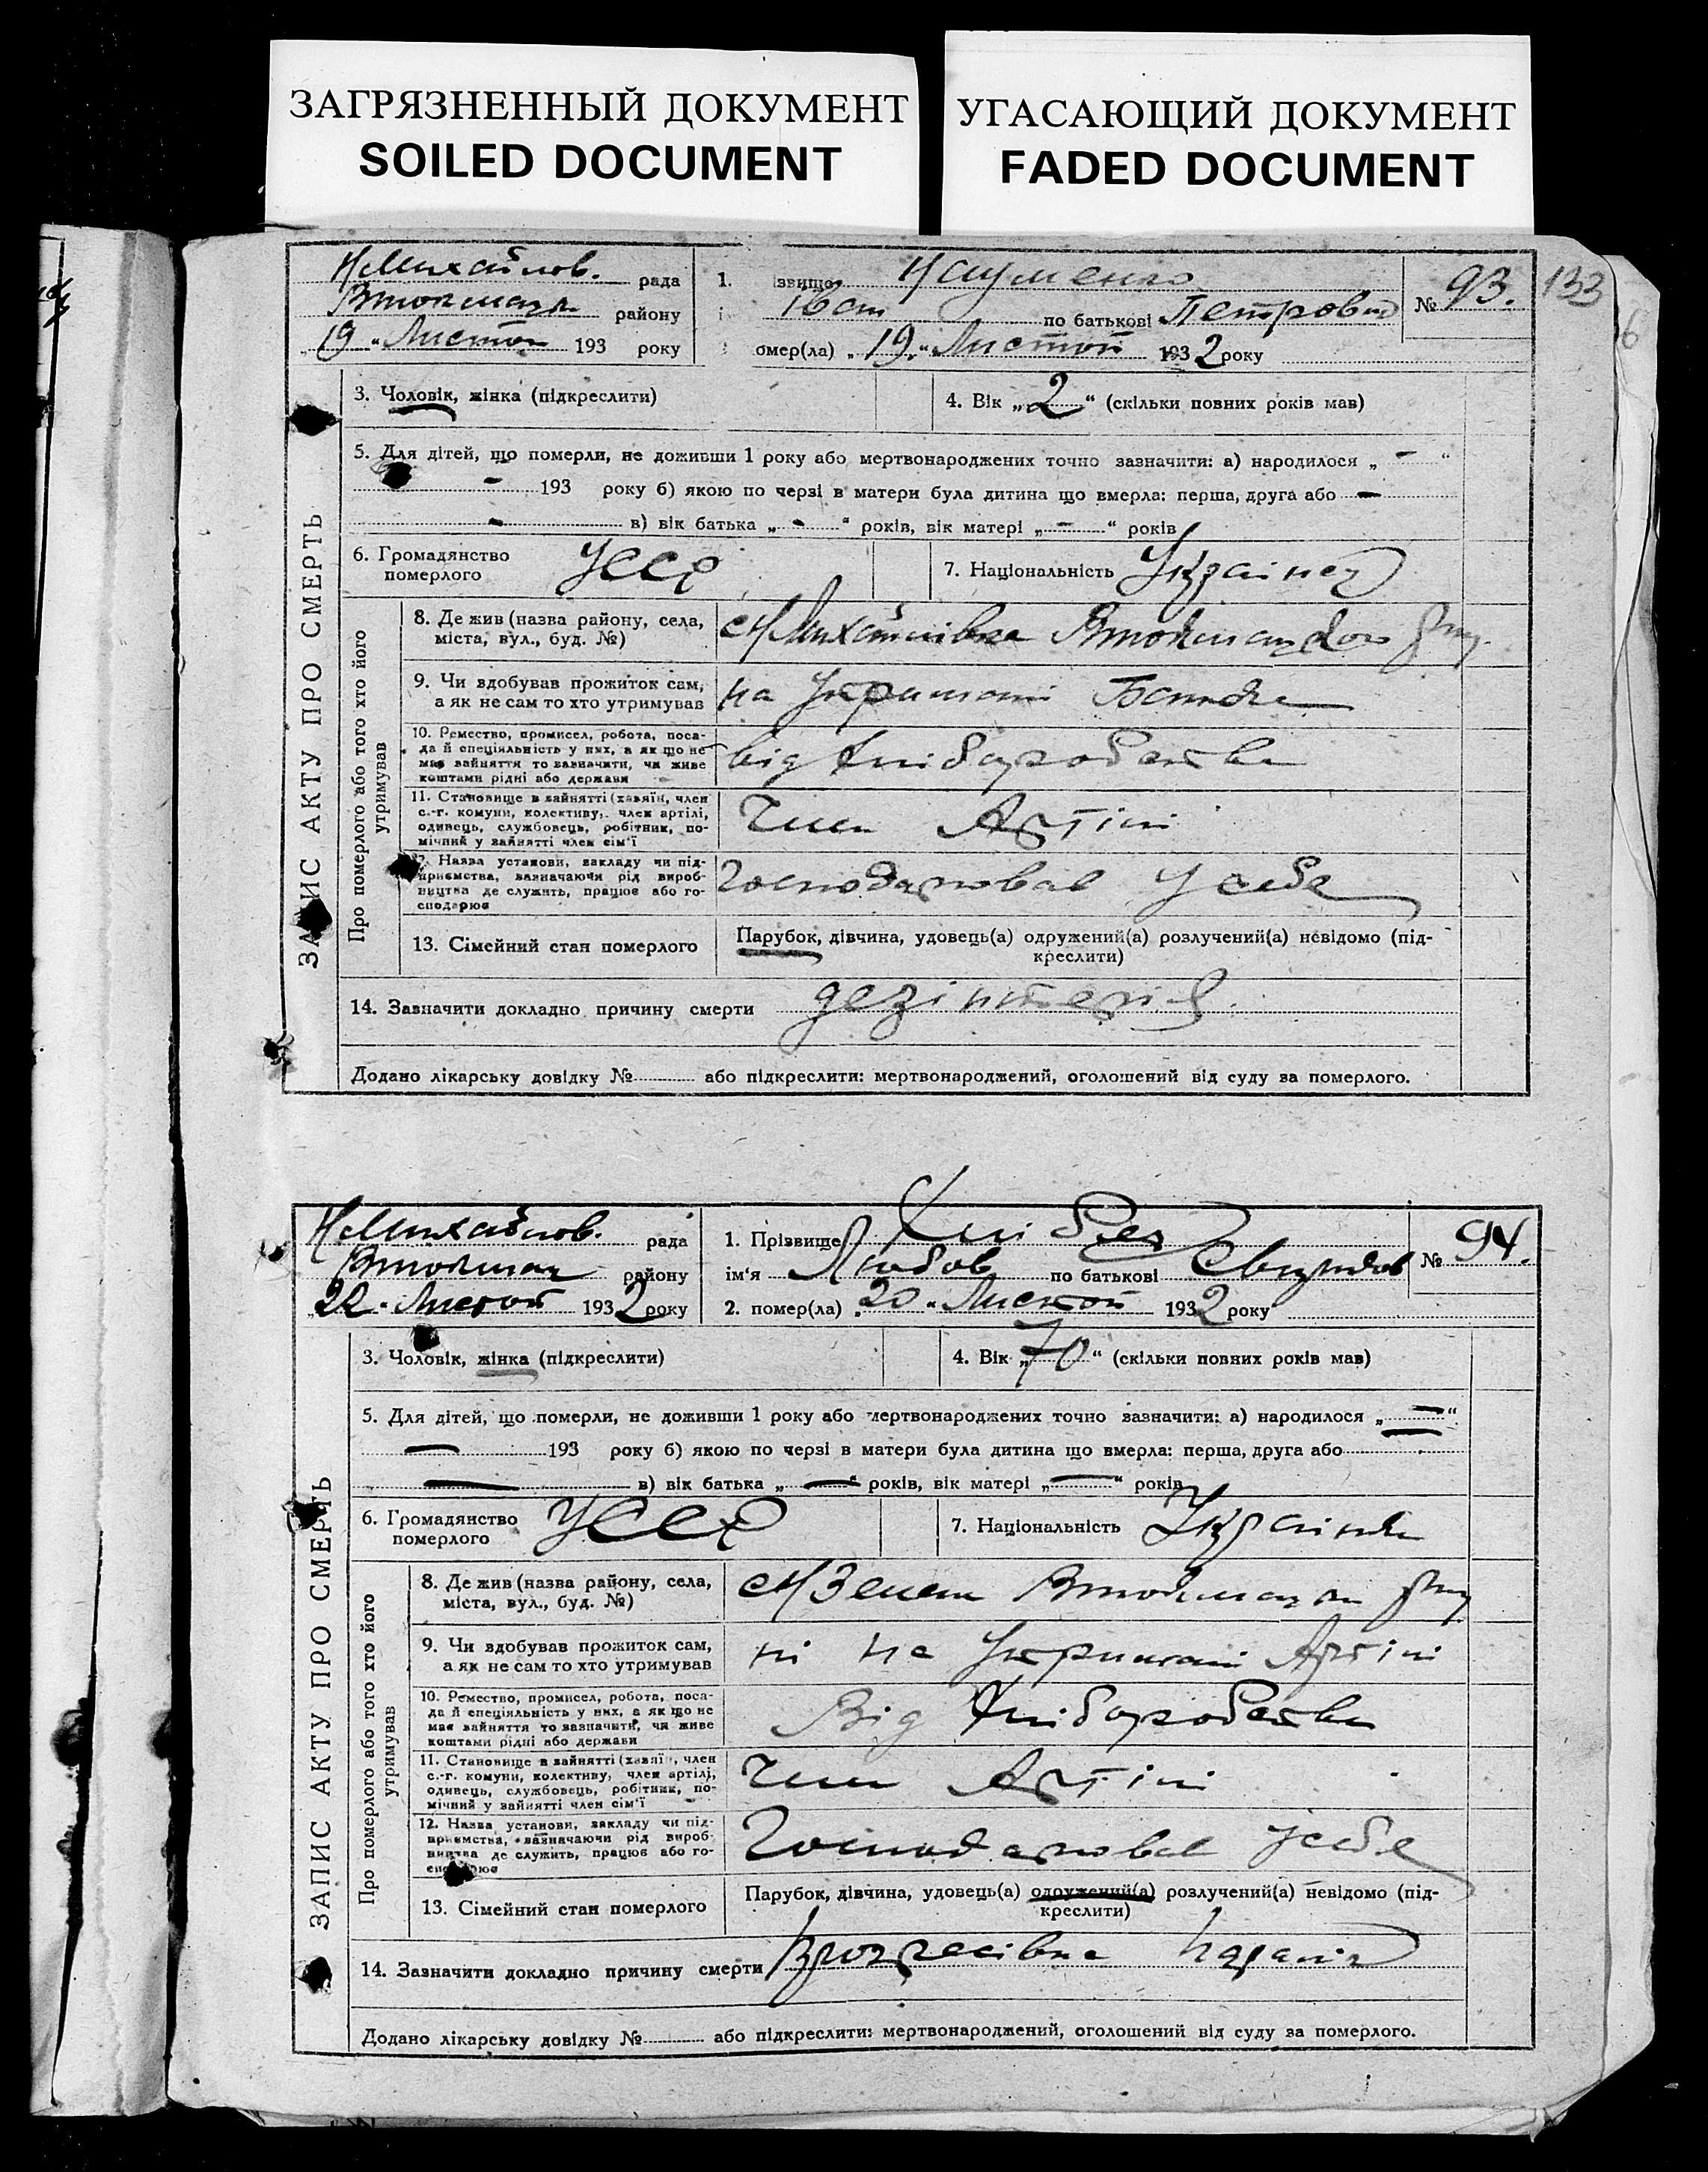 ЗАГРЯЗНЕННЫЙ ДОКУМЕНТ
SOILED DOCUMENT
УГАСАЮЩИЙ ДОКУМЕНТ
FADED DOCUMENT
133
ЗАПИС АКТУ ПРО СМЕРТЬ
Н Михайлов. рада
району
„19 „ Листоп 193 року
1. звище Науменко
по батькові Петрович
омер(ла) „19„ Листоп 1932 року
№ 93.
3. Чоловік, жінка (підкреслити)
4. Вік „2“ (скільки повних років мав)
5. Для дітей, що померли, не доживши 1 року або мертвонароджених точно зазначити: а) народилося „ - “
- 193 року б) якою по черзі в матери була дитина що вмерла: перша, друга або -
- в) вік батька „ - “ років, вік матері „ - “ років
6. Громадянство померлого УССР
7. Національність Українец
Про померлого або того хто його утримував
8. Де жив (назва району, села, міста, вул., буд. №)
с Н Михайлівка
9. Чи вдобував прожиток сам, а як не сам то хто утримував
на Утриманні Батька
10. Ремество, промисел, робота, посада й спеціяльність у них, а як що не має зайняття то зазначити, чи живе коштами рідні або держави
від Хліборобства
11. Становище в зайнятті (хазяїн, член с.-г. комуни, колективу, член артілі, одинець, службовець, робітник, помічний у зайнятті член сім'ї
Член Артілі
12. Назва установи, закладу чи підприємства, зазначаючи рід виробництва де служить, працює або господарює
Господарював У себе
13. Сімейний стан померлого
Парубок, дівчина, удовець(а) одружений(а) розлучений(а) невідомо (підкреслити)
14. Зазначити докладно причину смерти дезінтерія.
Додано лікарську довідку № або підкреслити: мертвонароджений, оголошений від суду за померлого.
ЗАПИС АКТУ ПРО СМЕРТЬ
Н Михайлов. рада
району
„22„ Листоп 1932 року
1. Прізвище
ім'я Любов по батькові
2. помер(ла) „20„ Листоп 1932 року
№ 94.
3. Чоловік, жінка (підкреслити)
4. Вік „70“ (скільки повних років мав)
5. Для дітей, що померли, не доживши 1 року або мертвонароджених точно зазначити: а) народилося „ — “
— 193 року б) якою по черзі в матери була дитина що вмерла: перша, друга або
— в) вік батька „ — “ років, вік матері „ — “ років
6. Громадянство померлого УССР
7. Національність Українка
Про померлого або того хто його утримував
8. Де жив (назва району, села, міста, вул., буд. №)
9. Чи вдобував прожиток сам, а як не сам то хто утримував
ні на Утриманні Артілі
10. Ремество, промисел, робота, посада й спеціяльність у них, а як що не має зайняття то зазначити, чи живе коштами рідні або держави
Від Хліборобства
11. Становище в зайнятті (хазяїн, член с.-г. комуни, колективу, член артілі, одинець, службовець, робітник, помічний у зайнятті член сім'ї
Член Артілі
12. Назва установи, закладу чи підприємства, зазначаючи рід виробництва де служить, працює або господарює
Господарював У себе
13. Сімейний стан померлого
Парубок, дівчина, удовець(а) одружений(а) розлучений(а) невідомо (підкреслити)
14. Зазначити докладно причину смерти
Додано лікарську довідку № або підкреслити: мертвонароджений, оголошений від суду за померлого.